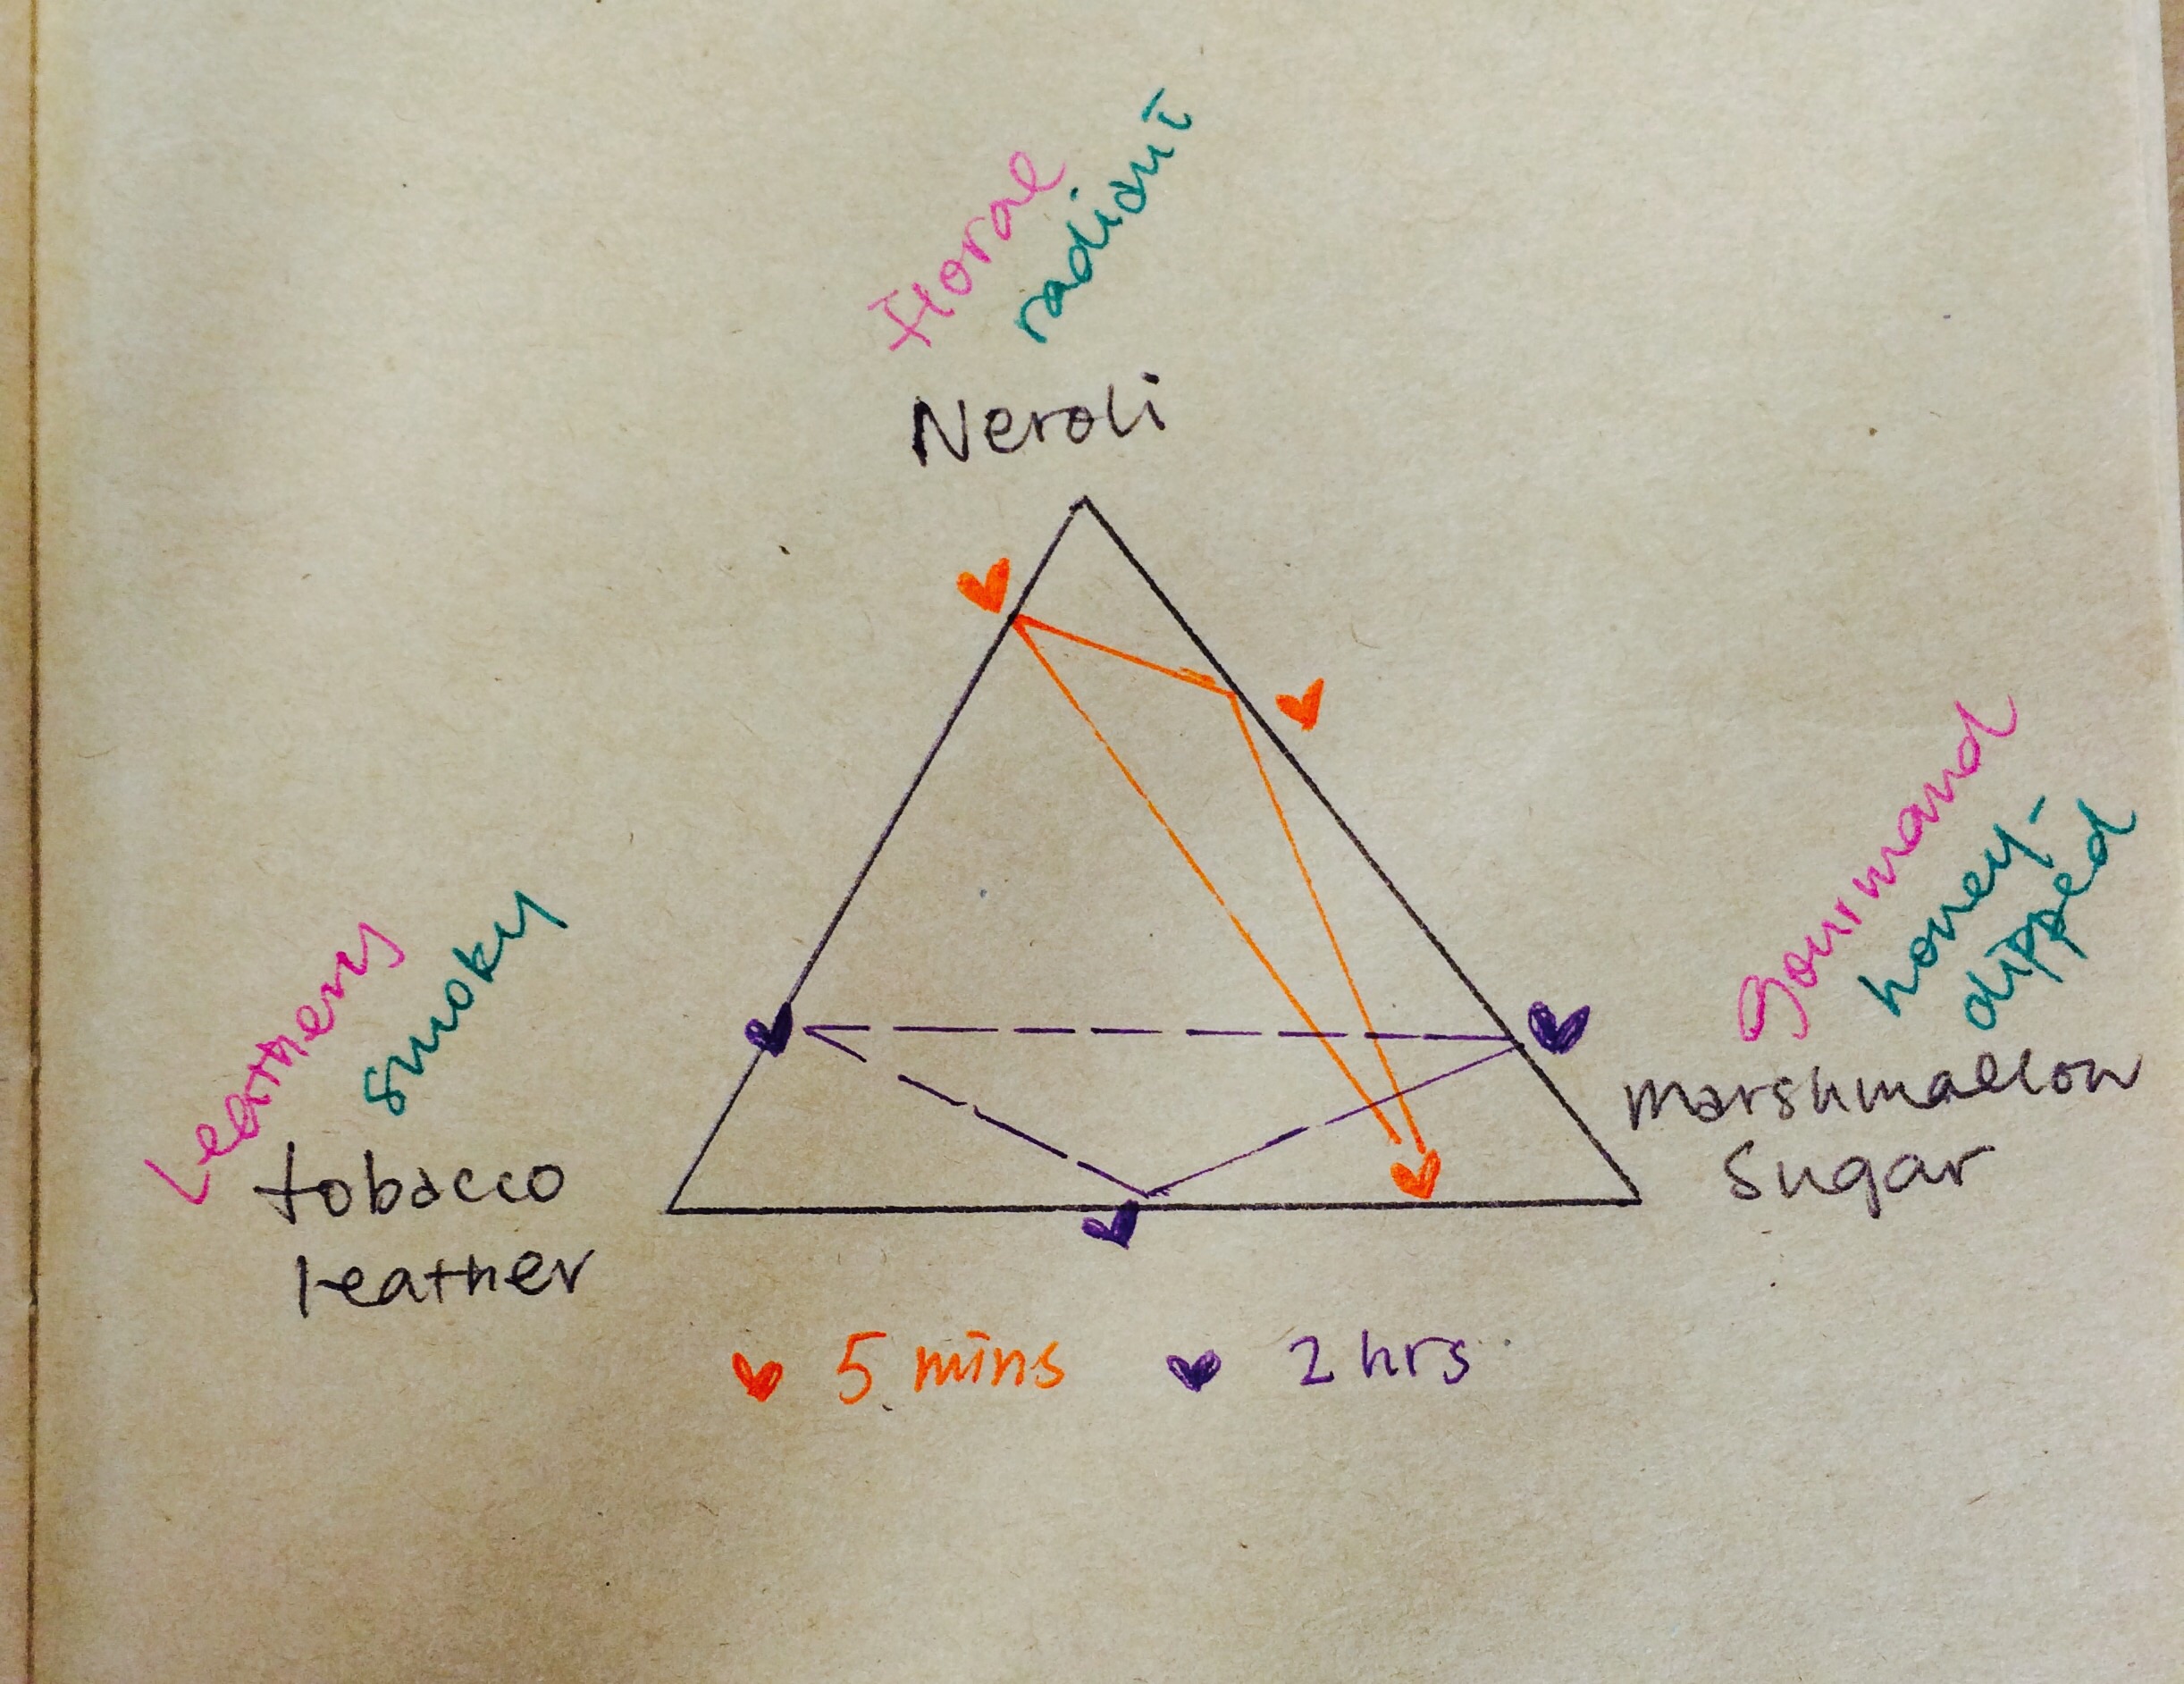 Floral
radiant
Neroli
Leathers
smoky
tobacco
leather
gourmand
honey-
dipped
marshmallow
sugar
5 mins
2 hrs